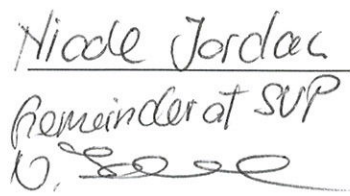 Nicole Jordan
Gemeinderat SVP
N.